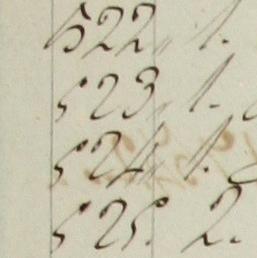 522 " 1.
523 " 1.
524 " 1.
525. 2.